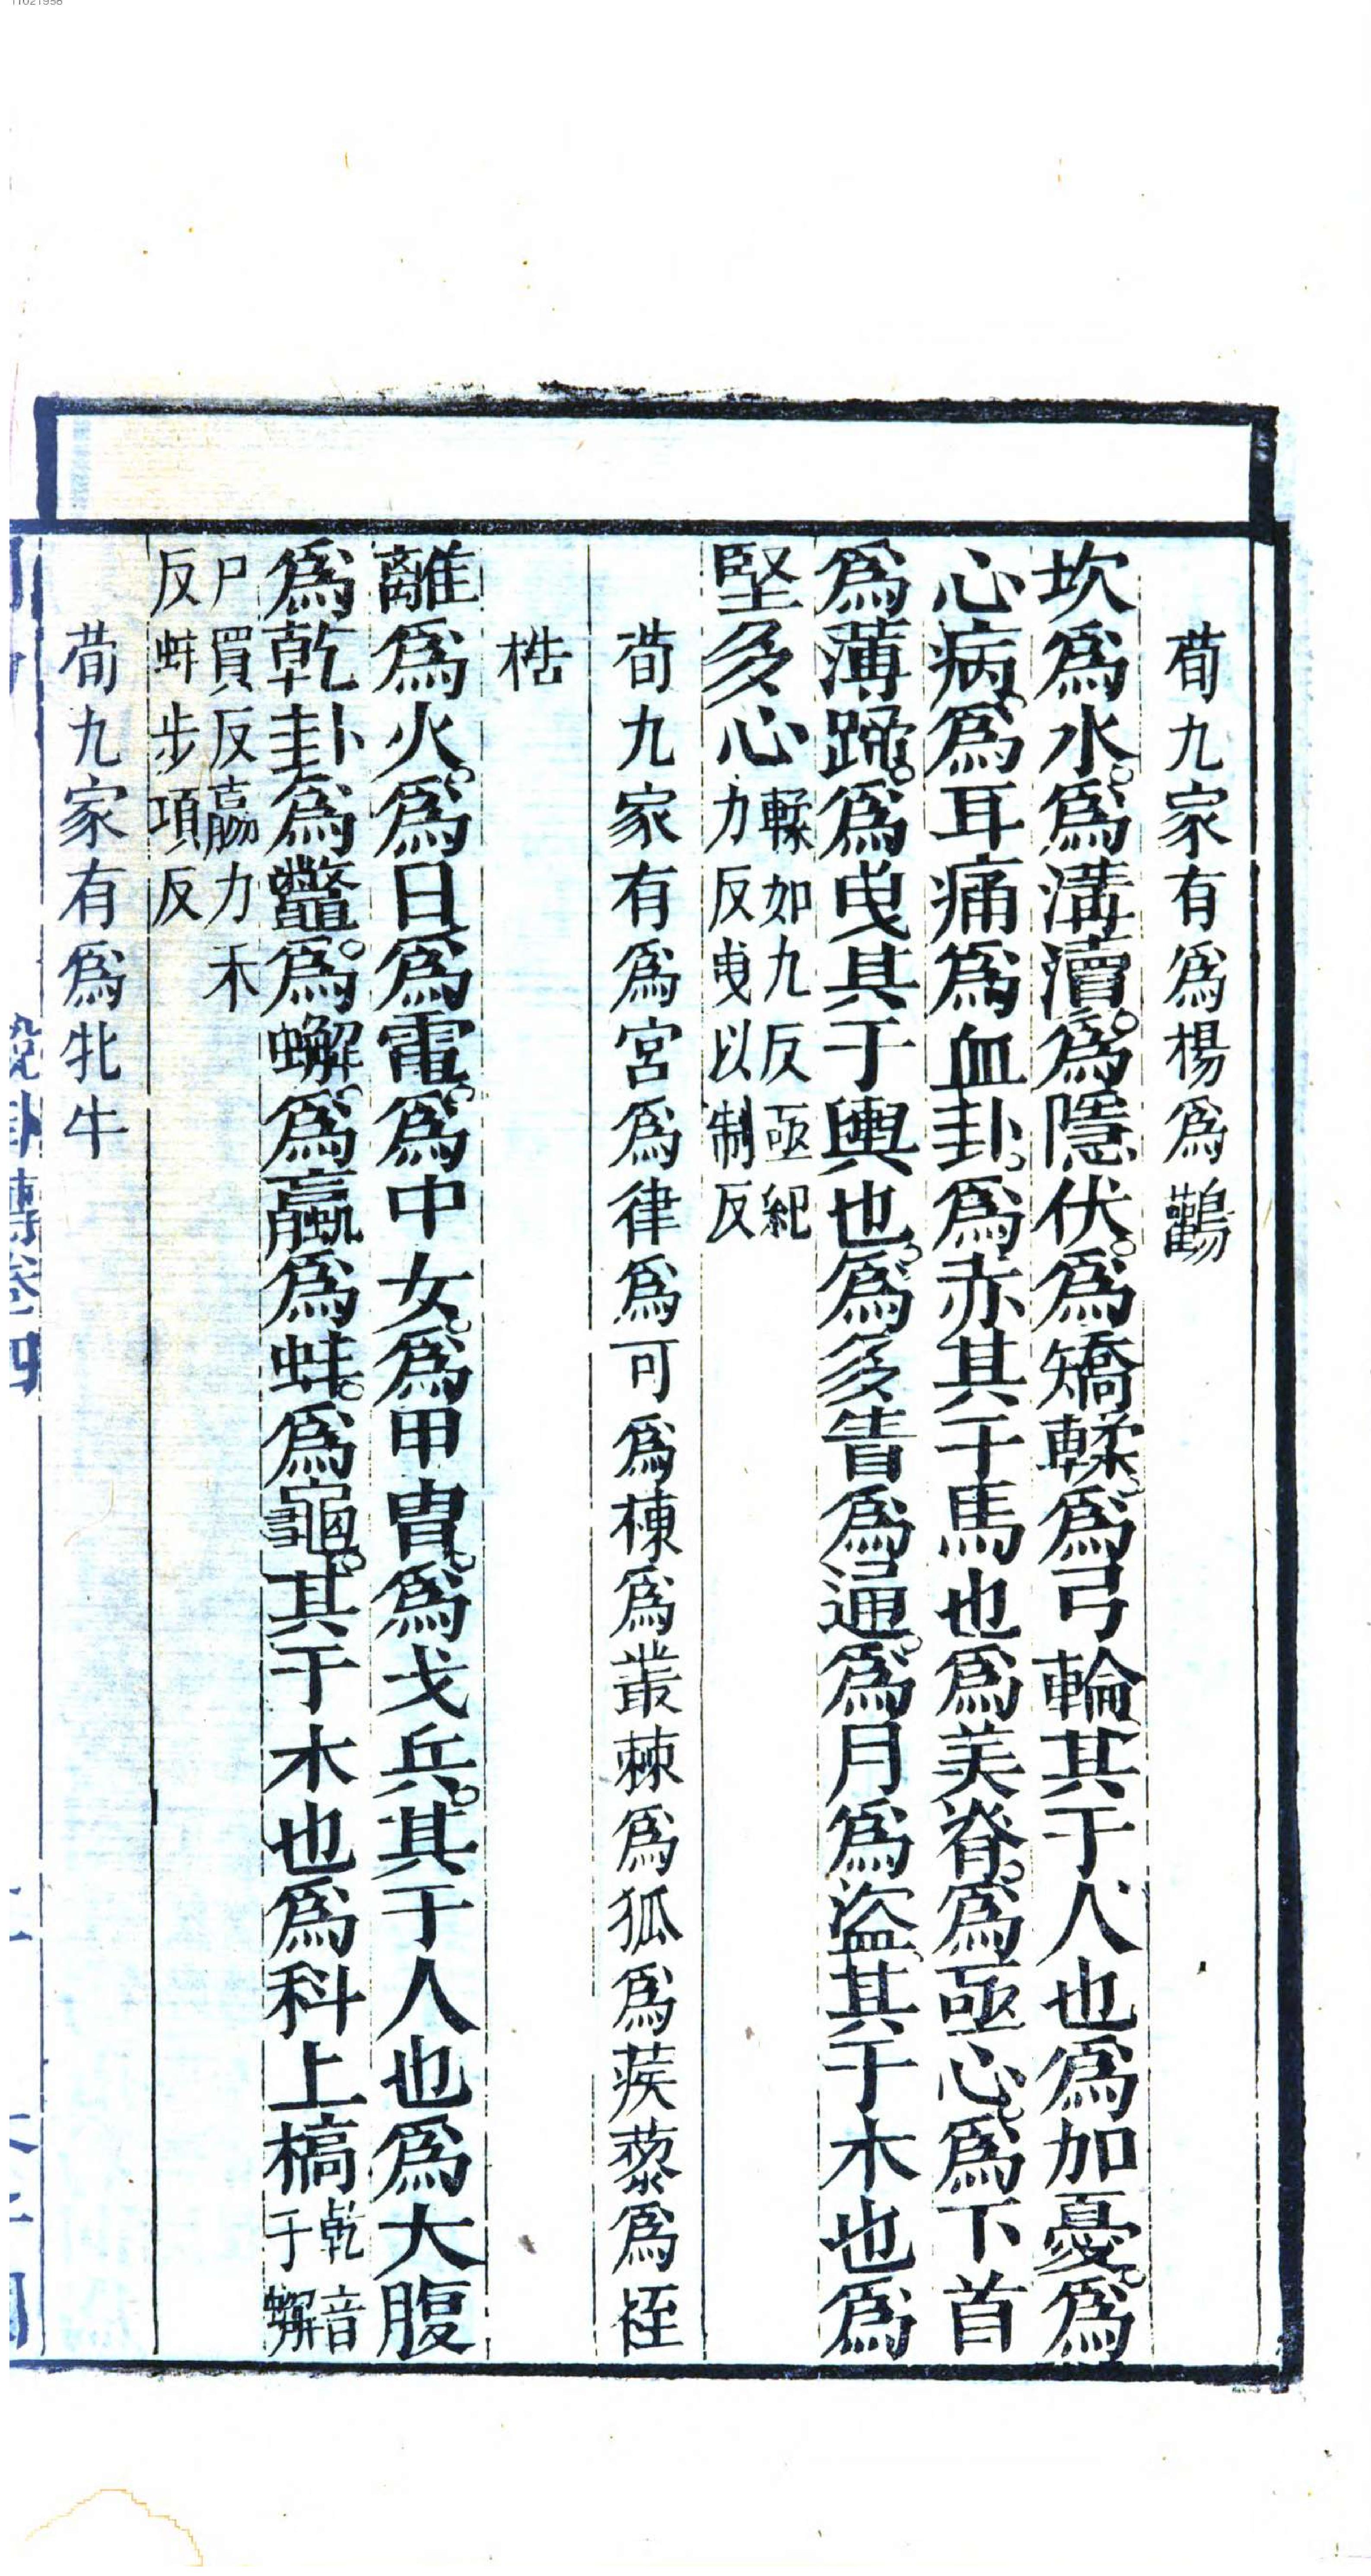 荀九家有爲楊爲鸛
坎爲水。爲溝瀆。爲隱伏。爲矯輮。爲弓輪其于人也爲加憂。爲
心病。爲耳痛爲血卦。爲赤其于馬也爲美脊。爲亟心。爲下首
爲薄蹄。爲曳其于輿也。爲多眚爲通。爲月爲盜。其于木也爲
堅多心輮如九反亟紀
力反曳以制反
荀九家有爲宮爲律爲可爲棟爲叢棘爲狐爲蒺藜爲桎
梏
離爲火。爲日爲電。爲中女。爲甲冑。爲戈兵。其于人也爲大腹
爲乾卦爲鼈。爲蟹。爲蠃爲蚌。爲龜。其于木也爲科上槁乾音
干蟹
戶買反蠃力禾
反蚌步項反
荀九家有爲牝牛
說卦傳卷四